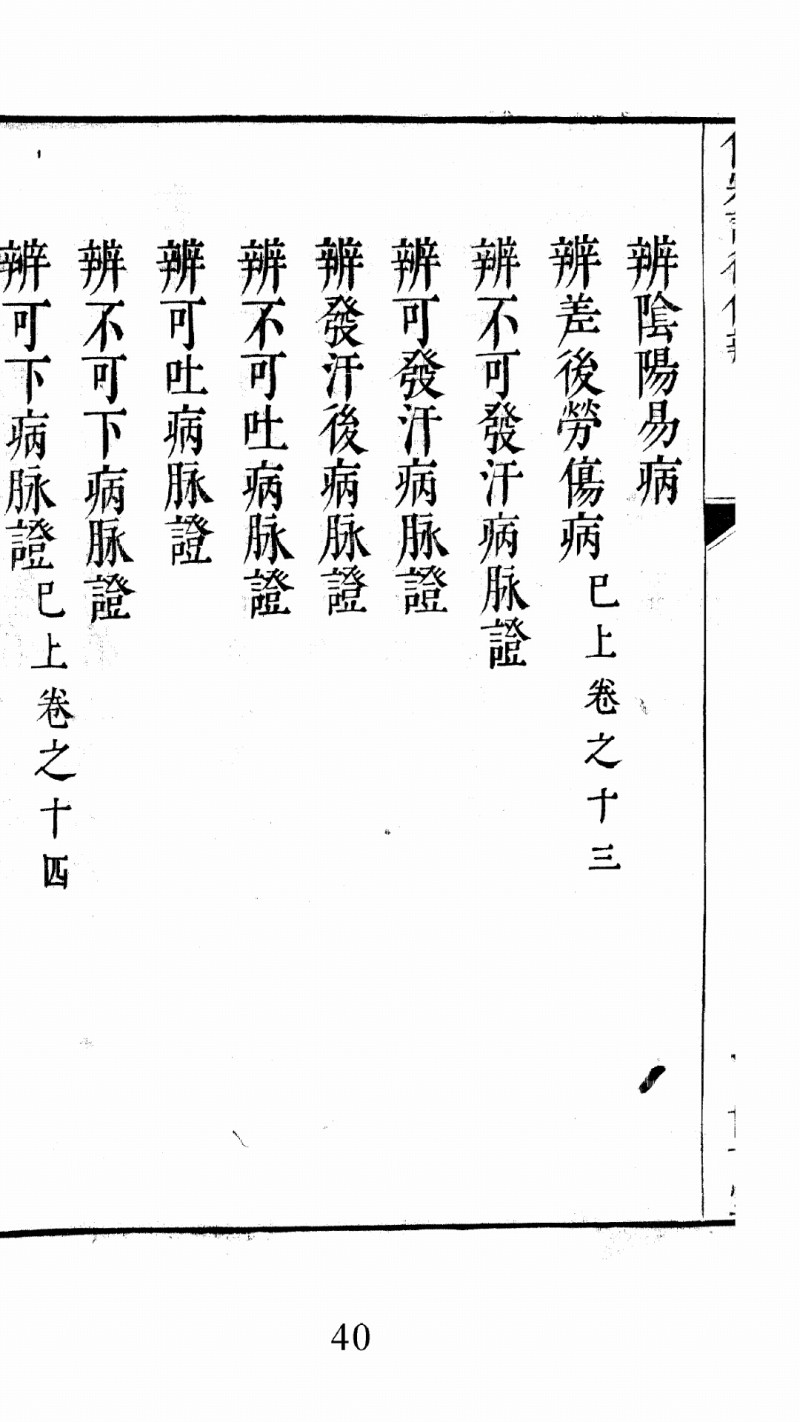 辨陰陽易病
辨差後勞傷病 已上卷之十三
辨不可發汗病脉證
辨可發汗病脉證
辨發汗後病脉證
辨不可吐病脉證
辨可吐病脉證
辨不可下病脉證
辨可下病脉證 已上卷之十四
40